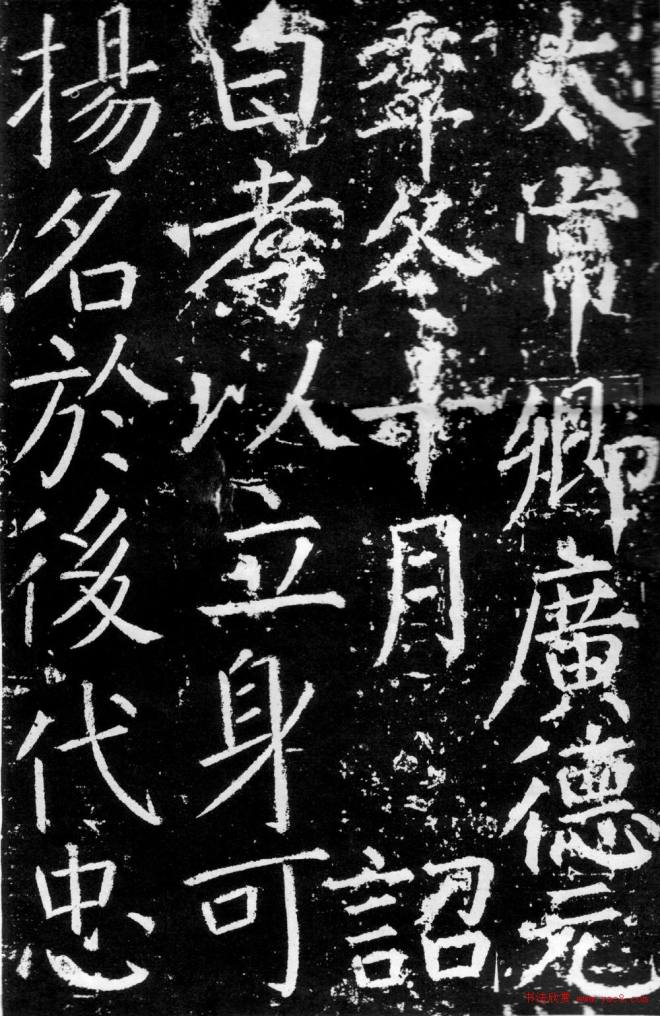 太常卿廣德元
年冬十月詔
曰孝以立身可
揚名於後代忠
书法欣赏 www.yac8.com